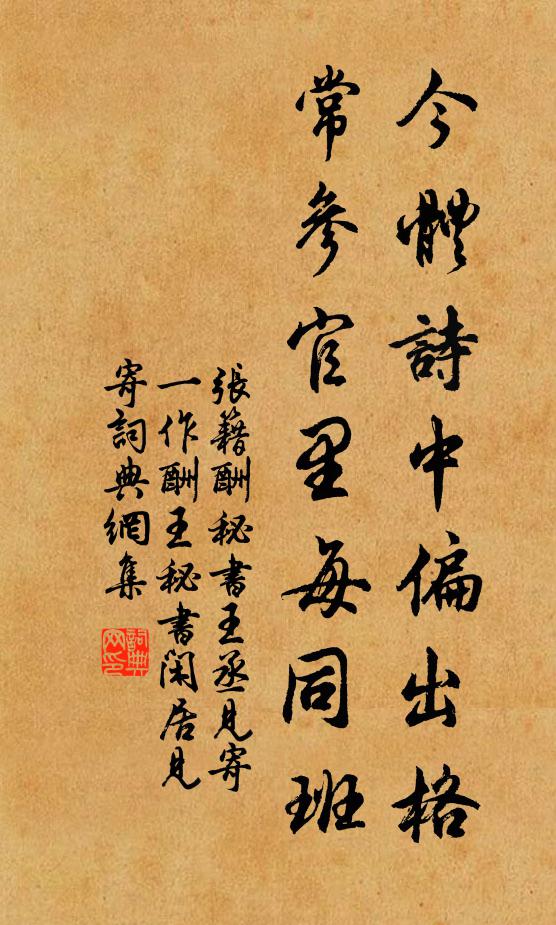 今體詩中偏出格
常參官里每同班
張籍酬秘書王丞見寄
一作酬王秘書閑居見
寄詞典網集
詞典网印